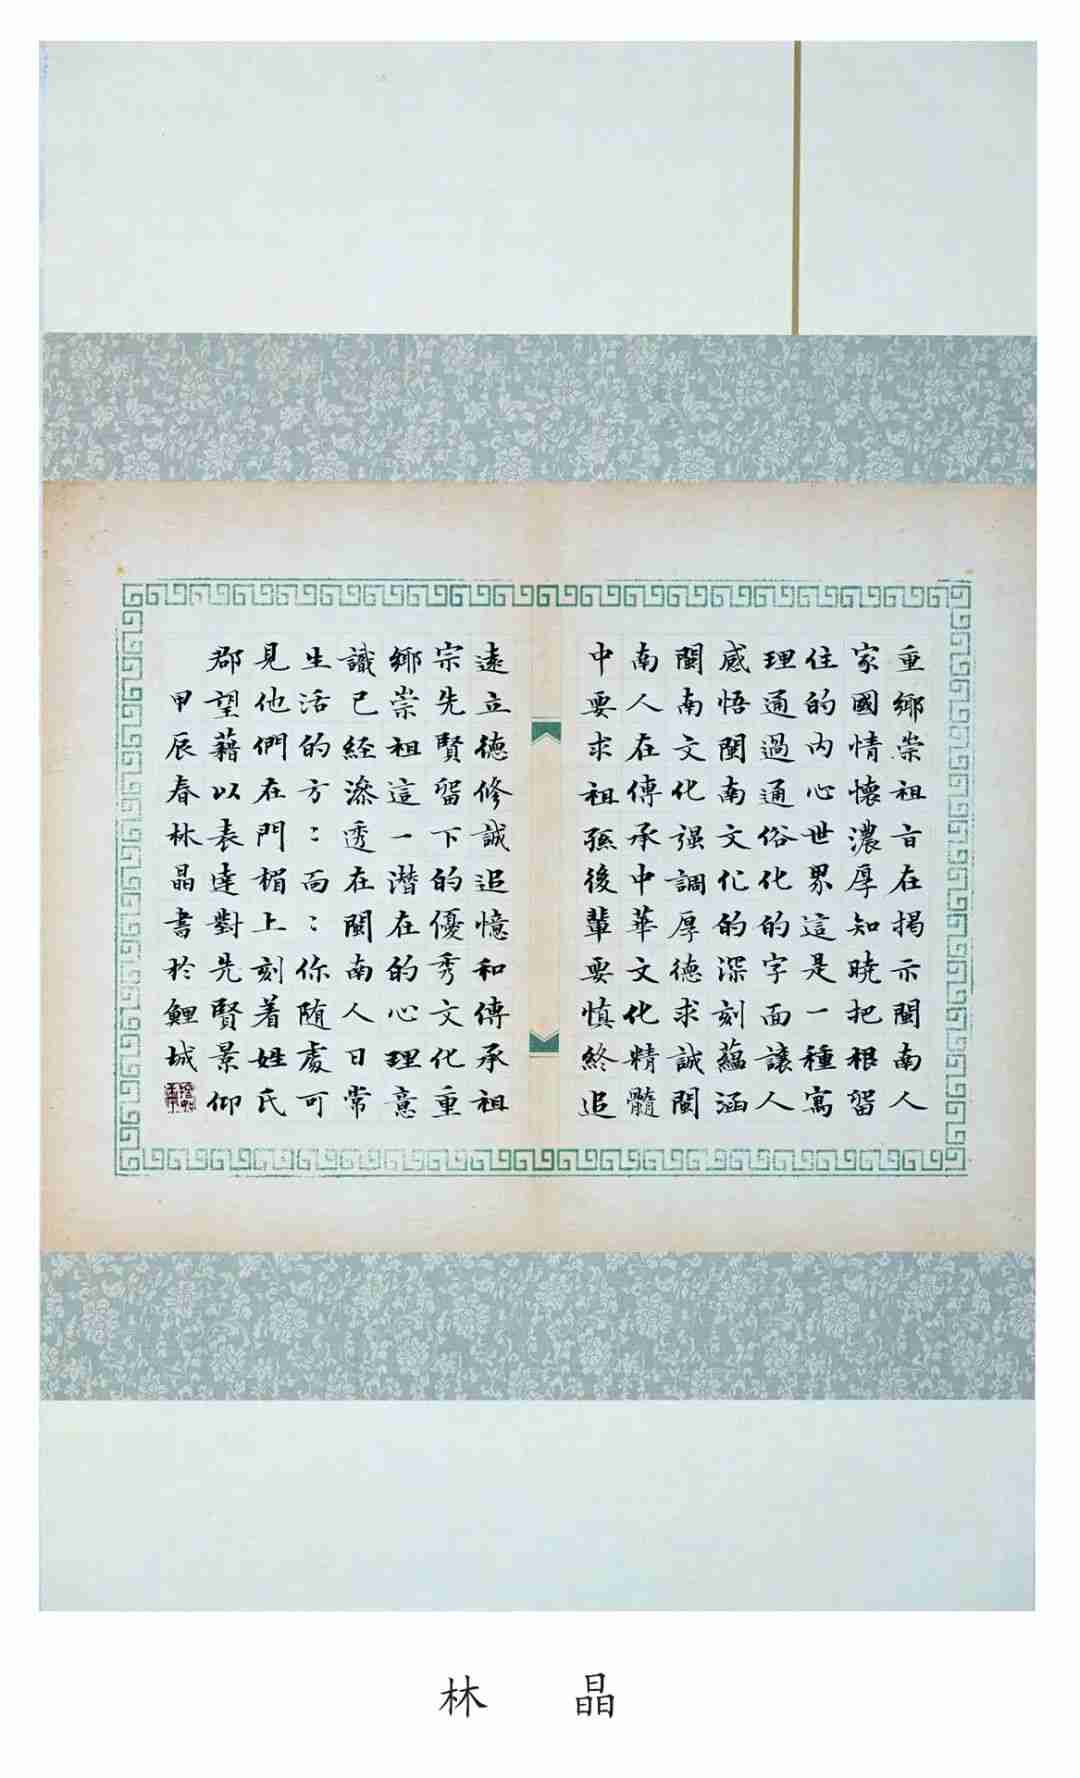 重鄉崇祖旨在揭示閩南人
家國情懷濃厚知曉把根留
住的内心世界這是一種寓
理通過通俗化的字面讓人
感悟閩南文化的深刻蘊涵
閩南文化强調厚德求誠閩
南人在傳承中華文化精髓
中要求祖孫後輩要慎終追
遠立德修誠追憶和傳承祖
宗先賢留下的優秀文化重
鄉崇祖這一潛在的心理意
識已經滲透在閩南人日常
生活的方：面：你随處可
見他們在門楣上刻着姓氏
郡望藉以表達對先賢景仰
甲辰春林晶書於鯉城
林 晶